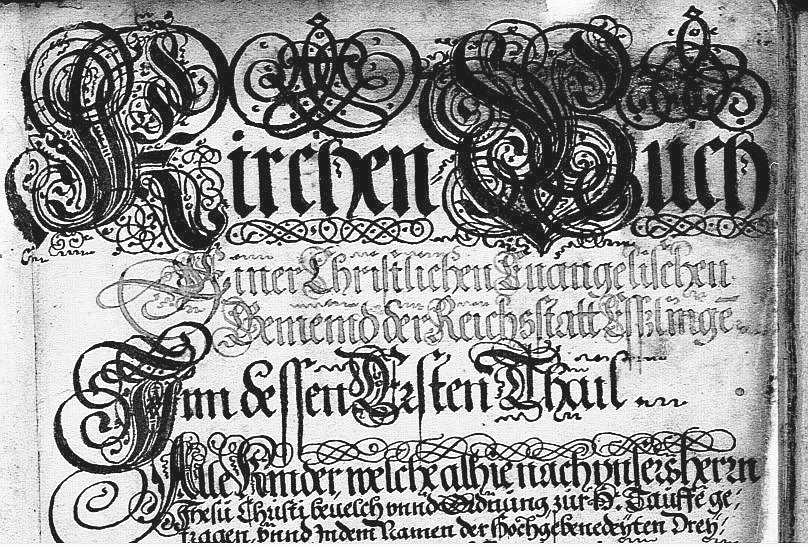 Kirchen-Buch
Einer Christlichen Euangelischen
Gemeind der Reichsstatt Esslinge
Inn dessen Ersten Thail
Alle Kinder, welche alhie nach vnsers herrn
Jhesu Christi beuelch vnnd Ordnung zur H: Tauffe ge,
tragen, vnnd In dem Namen der Hochgebenedeyten Drey,